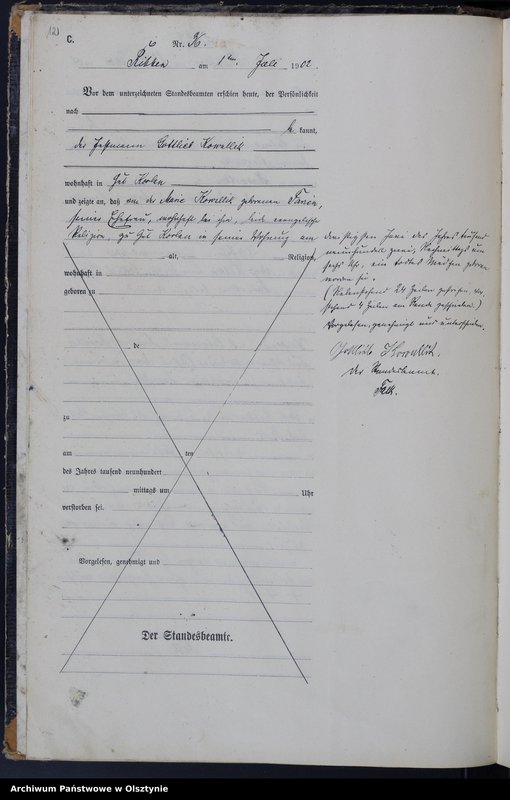 12)
C.
Nr. 
Ribben am 1ten Juli 1902.
Vor dem unterzeichneten Standesbeamten erschien heute, der Persönlichkeit
nach
be kannt,
der Gottlieb Kowallik
wohnhaft in Gut
und zeigte an, daß von der Marie Kowallik geborenen
seiner Ehefrau, wohnhaft bei ihm, beide evangelischer
Religion, zu Gut in seiner Wohnung am
alt, Religion,
wohnhaft in
geboren zu
de
zu
am ten
des Jahres tausend neunhundert
mittags um Uhr
verstorben sei.
Vorgelesen, genehmigt und
Der Standesbeamte.
dreißigsten Juni des Jahres tausend
neunhundert zwei, Nachmittags um
sechs Uhr, ein todtes Mädchen geboren
worden sei.
(Nebenstehend 24 Zeilen gestrichen, vor-
stehend 4 Zeilen am Rande geschrieben.)
Vorgelesen, genehmigt und unterschrieben.
Gottlieb Kowallik.
Der Standesbeamte.
Archiwum Państwowe w Olsztynie